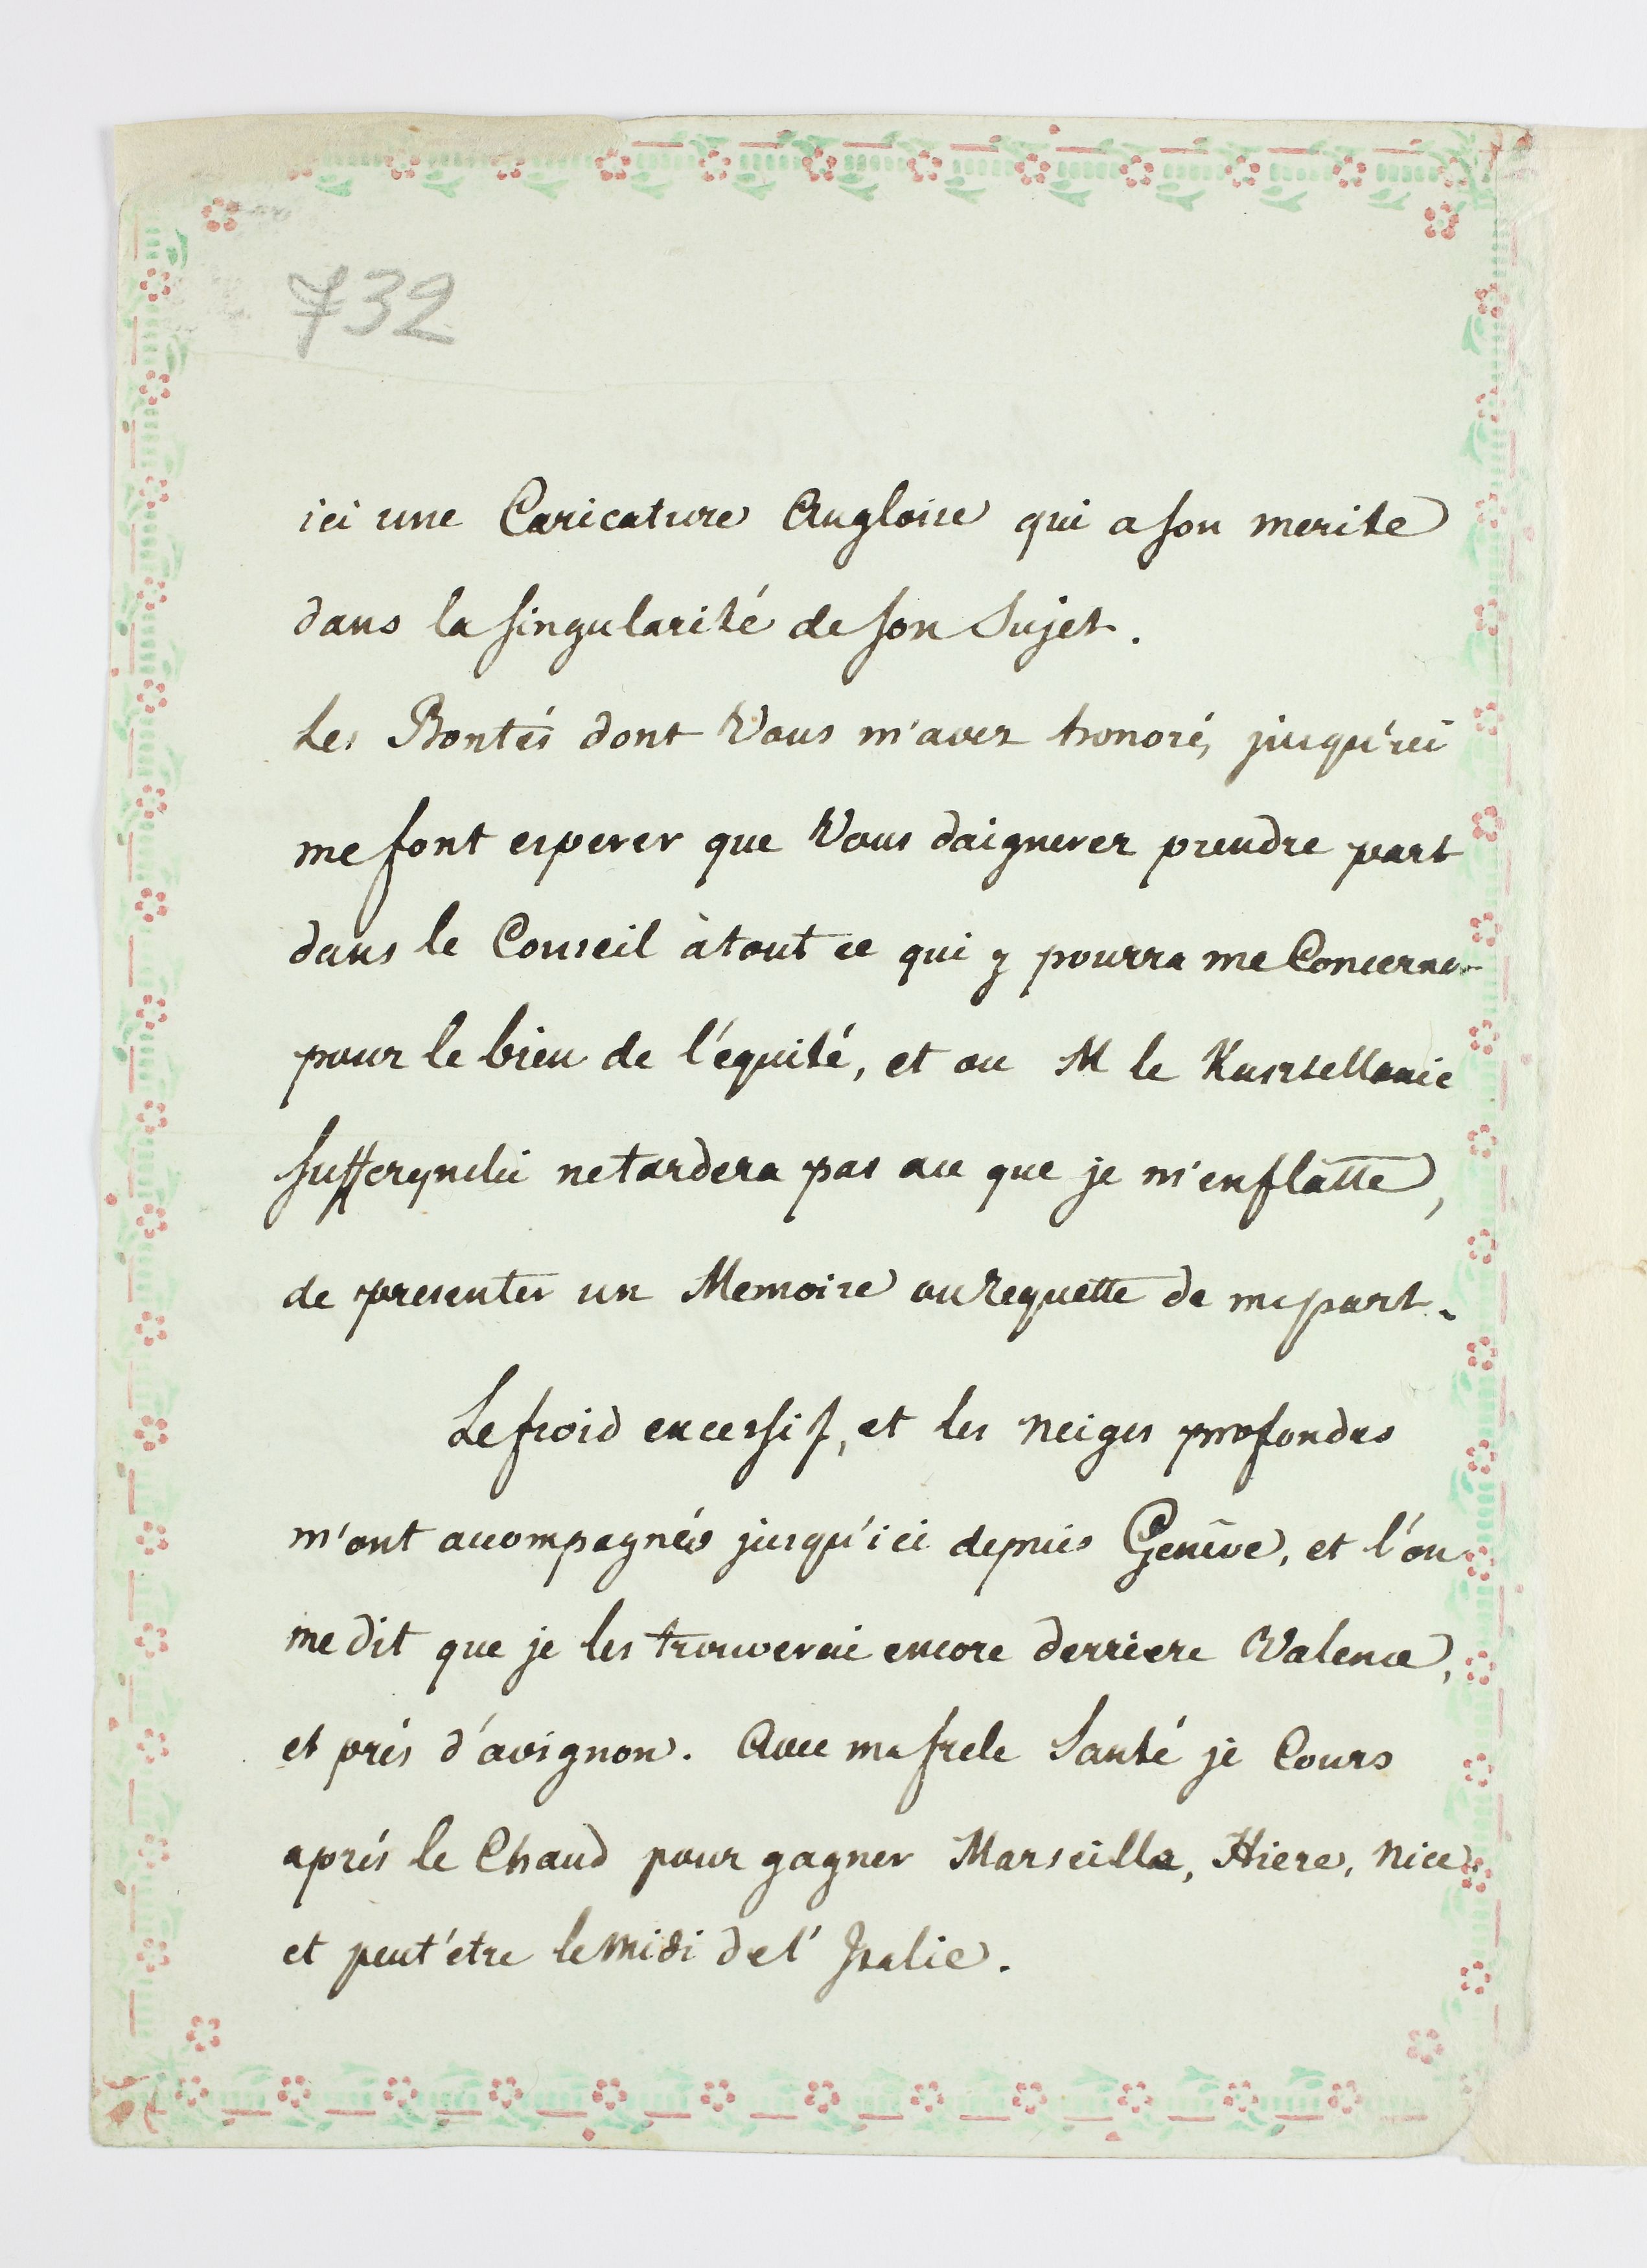 732
ici une Caricature Angloise qui a son merite
dans la singularité de son Sujet.
Les Bontés dont Vous m'avez honoré, jusqu'ici
me font esperer que Vous daignerez prendre part
dans le Conseil à tout ce qui y pourra me Concerner
pour le bien de l'équité, et ou M le
ne tardera pas a ce que je m'en flatte,
de presenter un Memoire ou requette de ma part.
Le froid excessif, et les neiges profondes
m'ont accompagnés jusqu'ici depuis Genêve, et l'on
me dit que je les trouverai encore derriere Valence,
et près d'avignon. Avec ma frele Santé je Cours
après le Chaud pour gagner Marseille, Hiere, Nice
et peut'etre le midi de l'Italie.